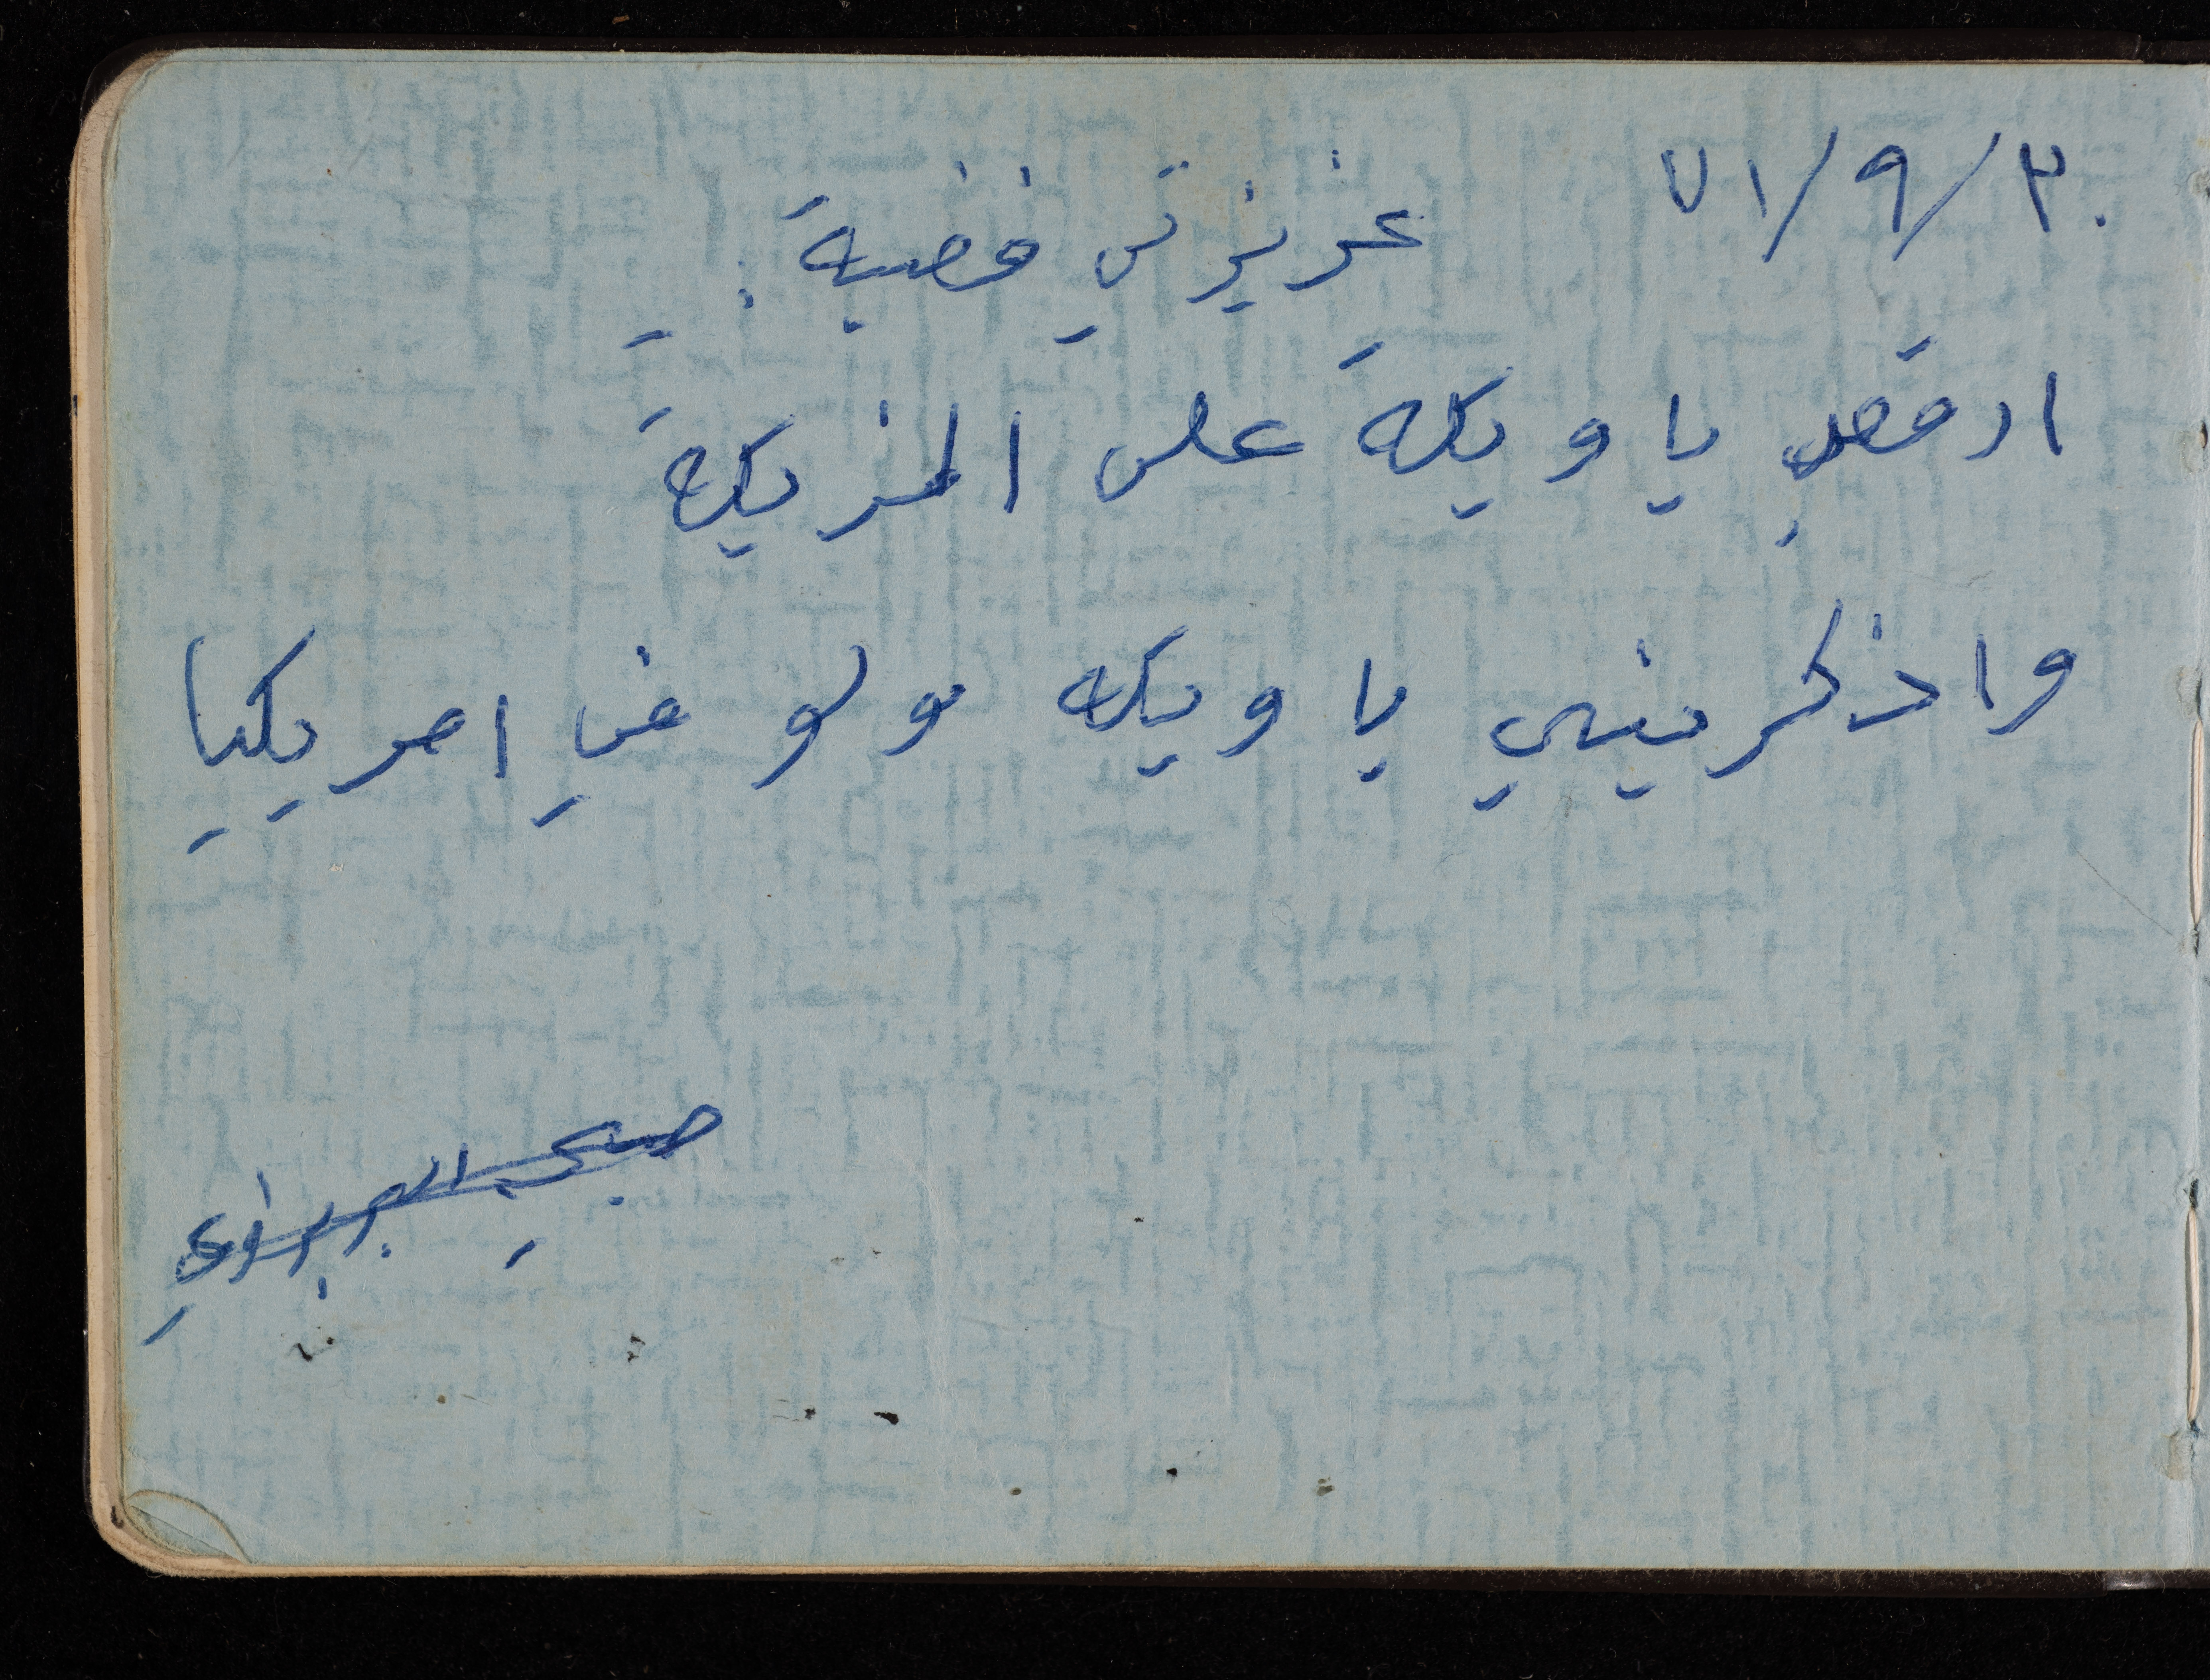 ٣٠/٩/٧١
عزيزتي فضية :
ارقصي يا ويكة على المزيكة
واذكريني يا ويكه ولو في امريكيا
صبحي